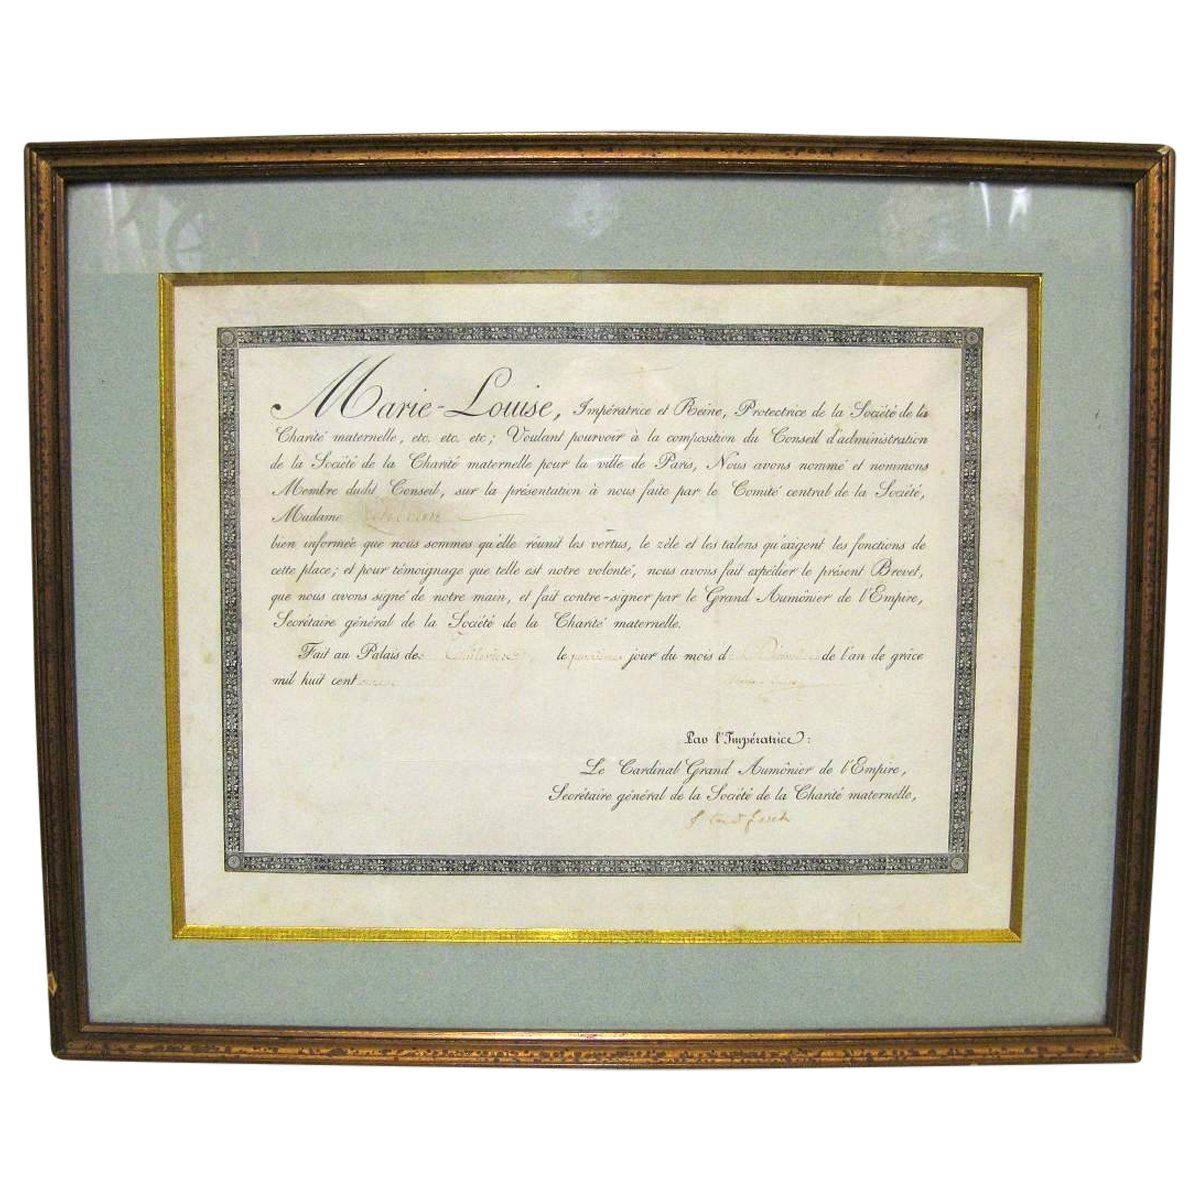 Marie-Louise, Impératrice et Reine, Protectrice de la Société de la
Charité maternelle, etc. etc. etc; Voulant pourvoir à la composition du Conseil d'administration
de la Société de la Charité maternelle pour la ville de Paris, Nous avons nommé et nommons
Membre dudit Conseil, sur la présentation à nous faite par le Comité central de la Société,
Madame
bien informée que nous sommes qu'elle réunit les vertus, le zèle et les talens qu'exigent les fonctions de
cette place; et pour témoignage que telle est notre volonté, nous avons fait expédier le présent Brevet,
que nous avons signé de notre main, et fait contre-signer par le Grand Aumônier de l'Empire,
Secrétaire général de la Société de la Charité maternelle.
Fait au Palais des Tuileries, le jour du mois de de l'an de grâce
mil huit cent
Par l'Impératrice:
Le Cardinal Grand Aumônier de l'Empire,
Secrétaire général de la Société de la Charité maternelle,
J Card Fesch